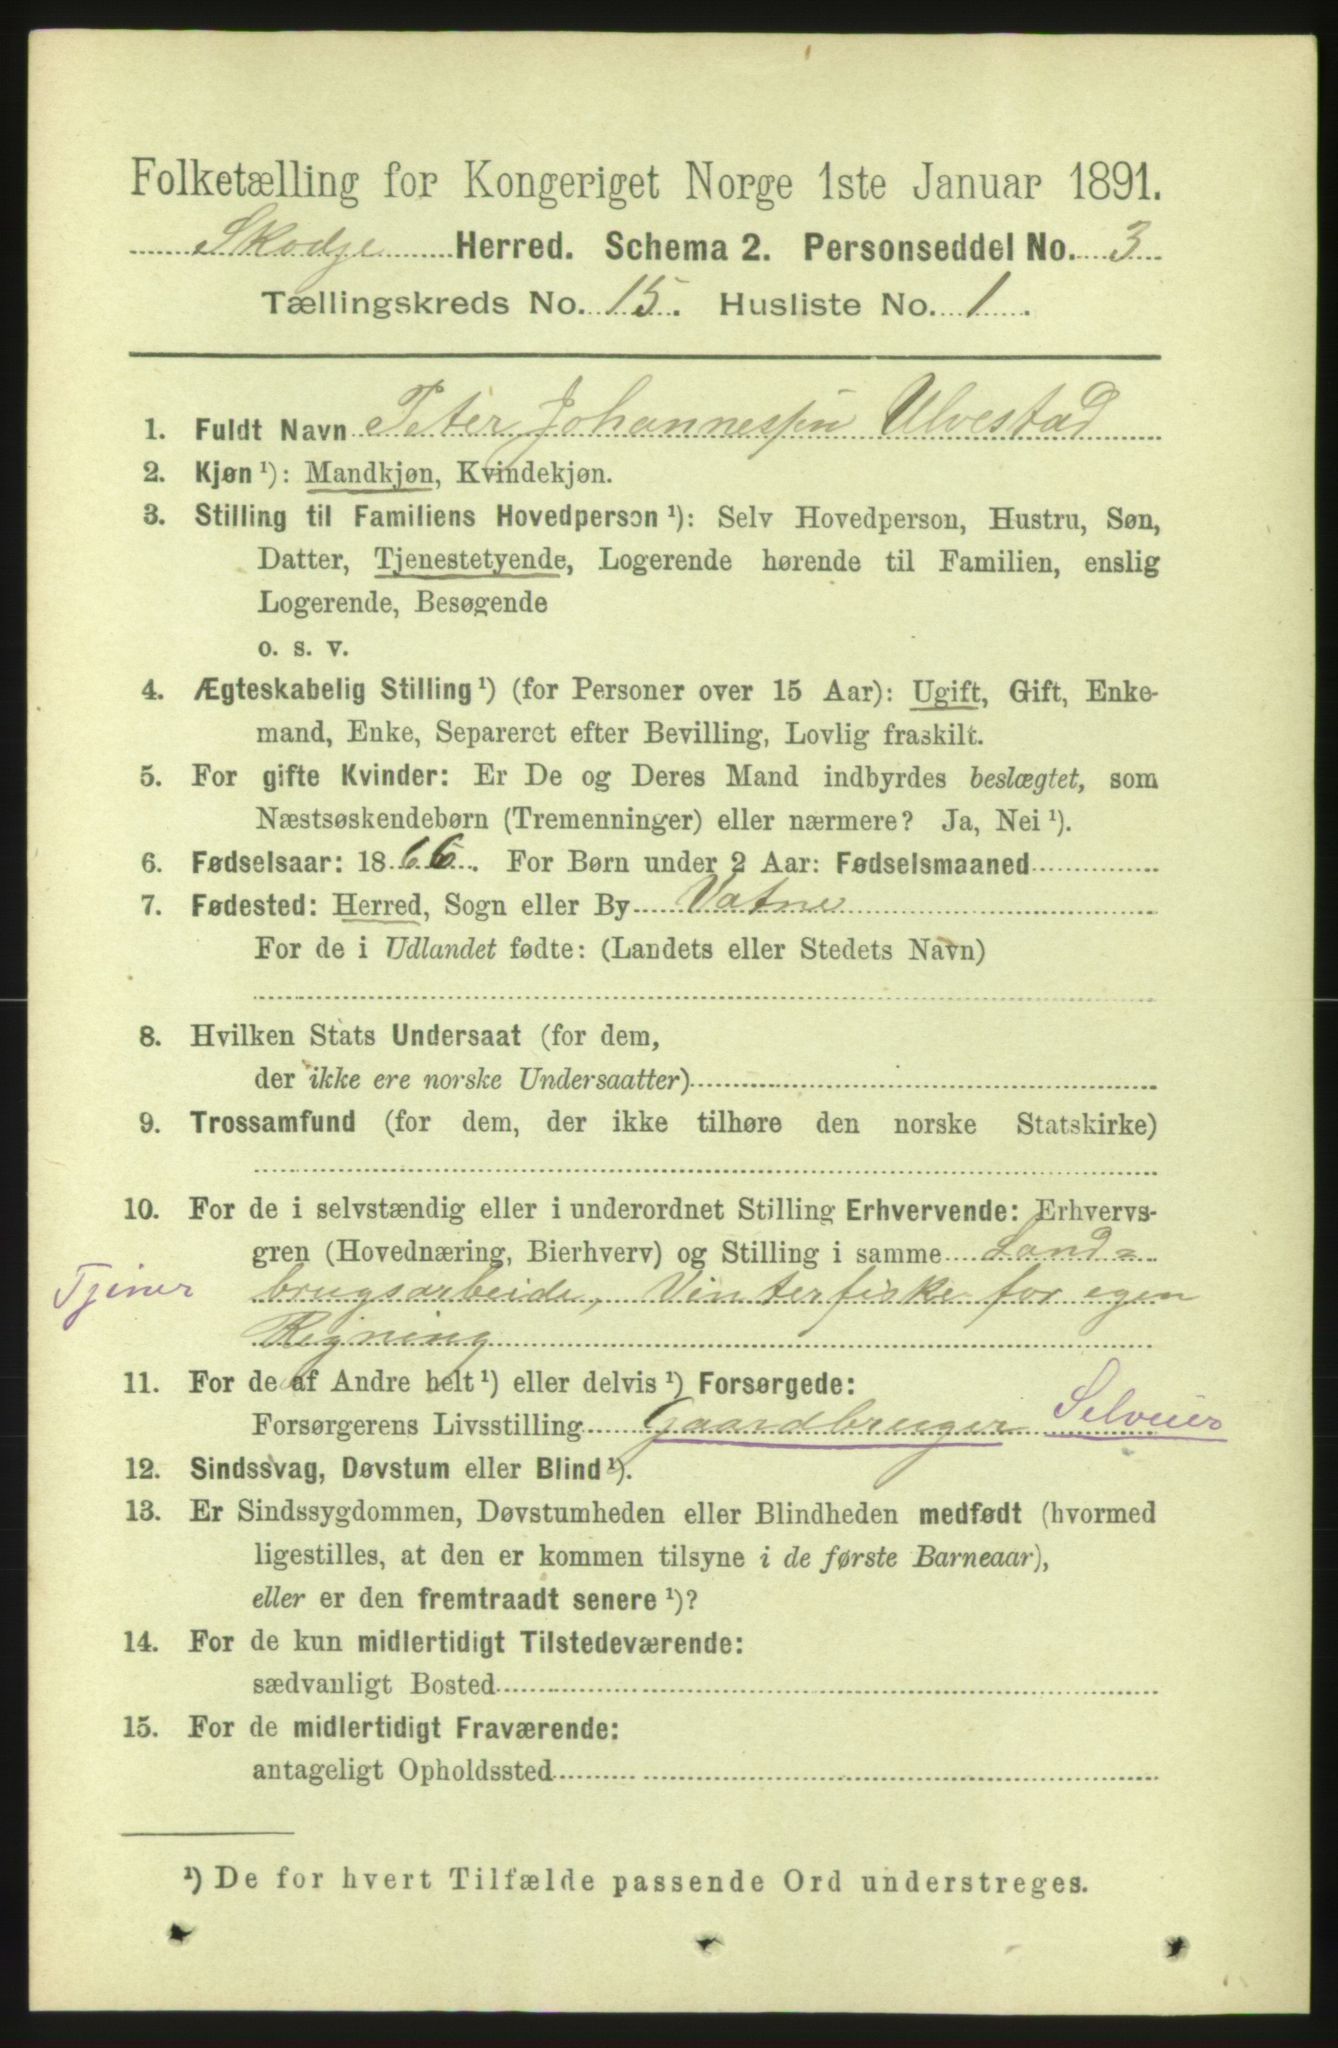 Folketælling for Kongeriget Norge 1ste Januar 1891.
Skodje Herred. Schema 2. Personseddel No. 3
Tællingskreds No. 15. Husliste No. 1.
1. Fuldt Navn Peter Johannessen Ulvestad
2. Kjøn ¹): Mandkjøn, Kvindekjøn.
3. Stilling til Familiens Hovedperson ¹): Selv Hovedperson, Hustru, Søn,
Datter, Tjenestetyende, Logerende hørende til Familien, enslig
Logerende, Besøgende
o. s. v.
4. Ægteskabelig Stilling ¹) (for Personer over 15 Aar): Ugift, Gift, Enke-
mand, Enke, Separeret efter Bevilling, Lovlig fraskilt.
5. For gifte Kvinder: Er De og Deres Mand indbyrdes beslægtet, som
Næstsøskendebørn (Tremenninger) eller nærmere? Ja, Nei ¹).
6. Fødselsaar: 1866. For Børn under 2 Aar: Fødselsmaaned
7. Fødested: Herred, Sogn eller By Vatne
For de i Udlandet fødte: (Landets eller Stedets Navn)
8. Hvilken Stats Undersaat (for dem,
der ikke ere norske Undersaatter)
9. Trossamfund (for dem, der ikke tilhøre den norske Statskirke)
10. For de i selvstændig eller i underordnet Stilling Erhvervende: Erhvervs-
gren (Hovednæring, Bierhverv) og Stilling i samme Land=
Tjener brugsarbeide, Vinterfiske for egen
Regning
11. For de af Andre helt ¹) eller delvis ¹) Forsørgede:
Forsørgerens Livsstilling Gaardbruger Selveier
12. Sindssvag, Døvstum eller Blind ¹).
13. Er Sindssygdommen, Døvstumheden eller Blindheden medfødt (hvormed
ligestilles, at den er kommen tilsyne i de første Barneaar),
eller er den fremtraadt senere ¹)?
14. For de kun midlertidigt Tilstedeværende:
sædvanligt Bosted
15. For de midlertidigt Fraværende:
antageligt Opholdssted
¹) De for hvert Tilfælde passende Ord understreges.